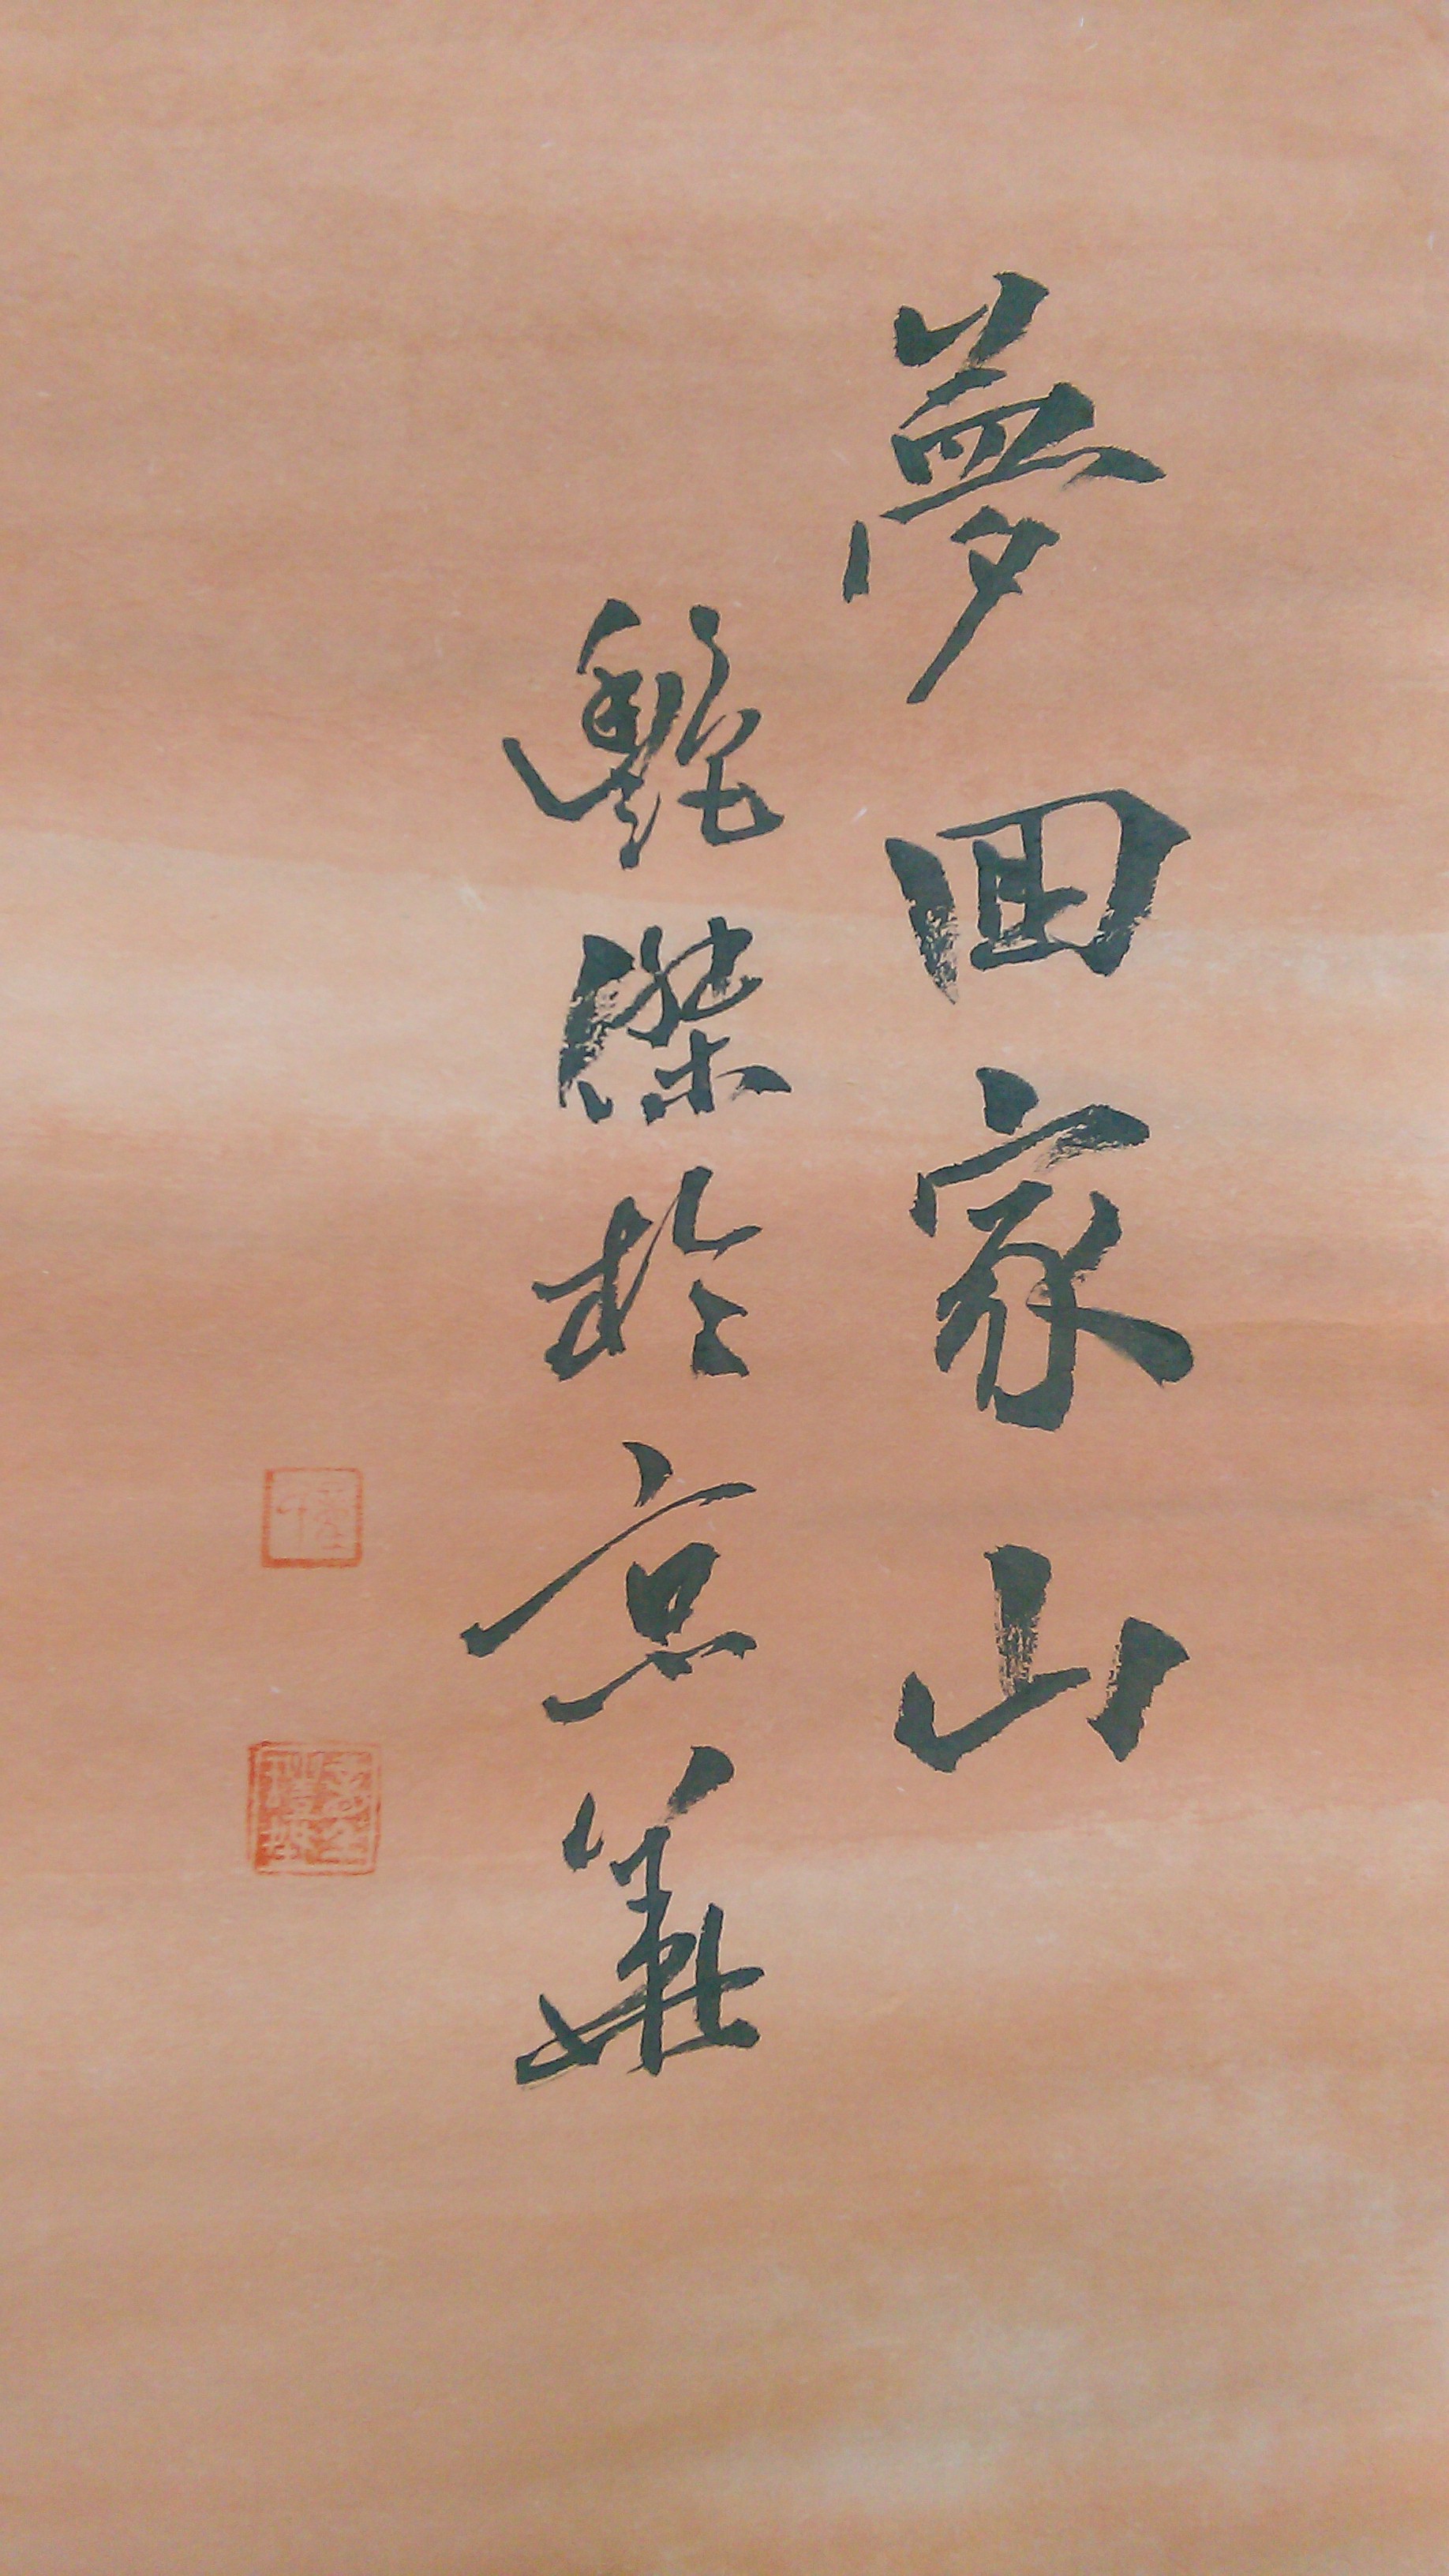 夢回家山
艷傑於京華